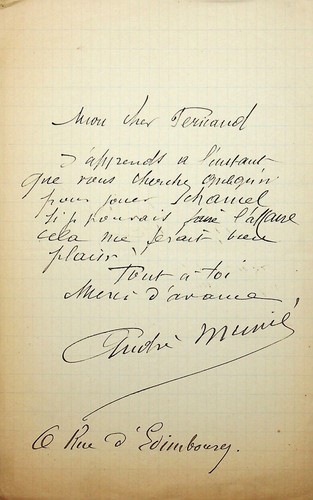 Mon cher Fernand
J'apprends a l'instant
que vous cherchez quelqu'un
pour jouer
si je pouvais faire l'affaire
cela me ferait bien
plaisir
Tout a toi
Merci d'avance
André
6 Rue d'Edimbourg.